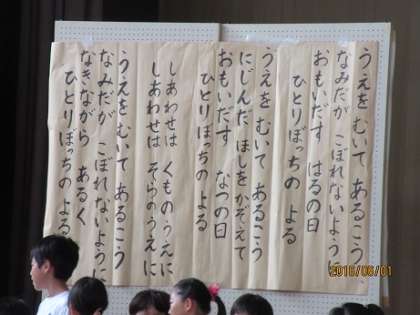 うえを むいて あるこう
なみだが こぼれないよう
おもいだす はるの日
ひとりぼっちの よる
うえを むいて あるこう
にじんだ ほしを かぞえて
おもいだす なつの日
ひとりぼっちの よる
しあわせは くものうえに
しあわせは そらのうえに
うえを むいて あるこう
なみだが こぼれないように
なきながら あるく
ひとりぼっちの よる
2016/06/01